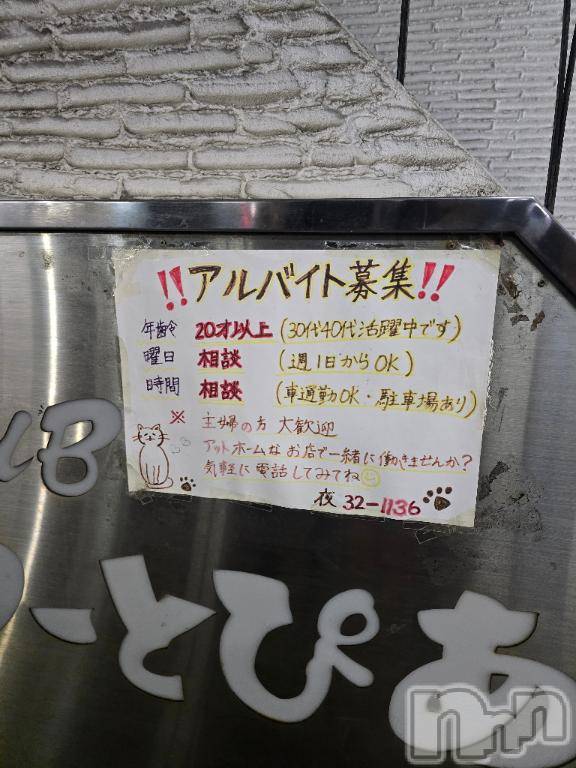 !!アルバイト募集!!
年齢 20才以上 (30代40代活躍中です)
曜日 相談 (週1日からOK)
時間 相談 (車通勤OK・駐車場あり)
※ 主婦の方 大歓迎
アットホームな お店で一緒に働きませんか?
気軽に電話してみてね
夜 32-1136
UB
ーとぴあ